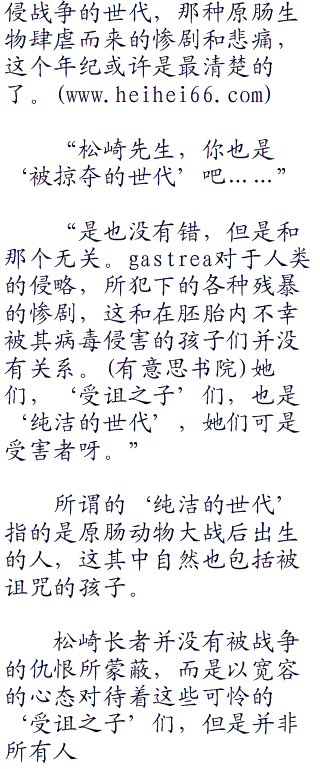 侵战争的世代，那种原肠生
物肆虐而来的惨剧和悲痛，
这个年纪或许是最清楚的
了。(www.heihei66.com)
“松崎先生，你也是
‘被掠夺的世代’吧……”
“是也没有错，但是和
那个无关。gastrea对于人类
的侵略，所犯下的各种残暴
的惨剧，这和在胚胎内不幸
被其病毒侵害的孩子们并没
有关系。(有意思书院)她
们，‘受诅之子’们，也是
‘纯洁的世代’，她们可是
受害者呀。”
所谓的‘纯洁的世代’
指的是原肠动物大战后出生
的人，这其中自然也包括被
诅咒的孩子。
松崎长者并没有被战争
的仇恨所蒙蔽，而是以宽容
的心态对待着这些可怜的
‘受诅之子’们，但是并非
所有人